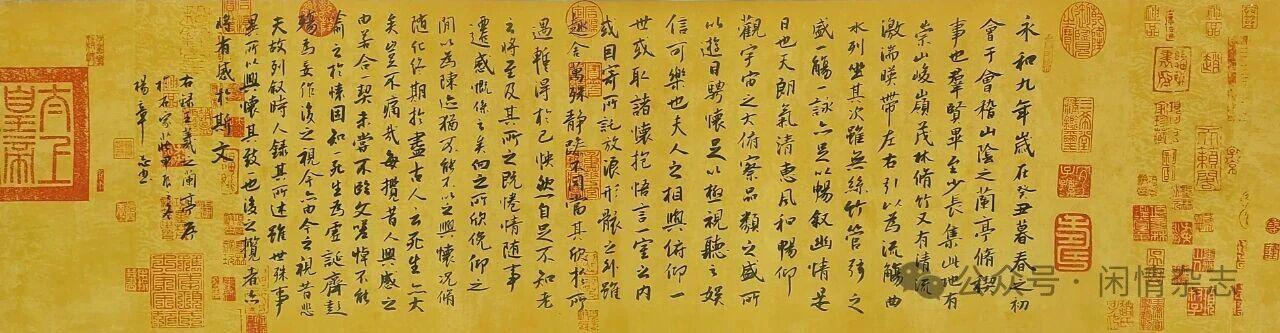 永和九年歲在癸丑暮春之初
會于會稽山陰之蘭亭脩禊
事也羣賢畢至少長集此地有
崇山峻嶺茂林脩竹又有清流
激湍暎帶左右引以為流觴曲
水列坐其次雖無絲竹管弦之
盛一觴一詠亦足以暢敘幽情是
日也天朗氣清惠風和暢仰
觀宇宙之大俯察品類之盛所
以遊目騁懷足以極視聽之娛
信可樂也夫人之相與俯仰一
世或取諸懷抱悟言一室之内
或因寄所託放浪形骸之外雖
趣舍萬殊靜躁不同當其欣於所
遇暫得於己怏然自足不知老
之將至及其所之既倦情随事
遷感慨係之矣向之所欣俛仰之
閒以為陳迹猶不能不以之興懷況脩
随化終期於盡古人云死生亦大
矣豈不痛哉每攬昔人興感之
由若合一契未嘗不臨文嗟悼不能
喻之於懷固知一死生為虛誕齊彭
殤為妄作後之視今亦由今之視昔悲
夫故列敘時人錄其所述雖世殊事
異所以興懷其致一也後之攬者亦
將有感於斯文
右録王羲之蘭亭序
楊章
太上皇帝
天籟閣
公众号 · 闲情杂志